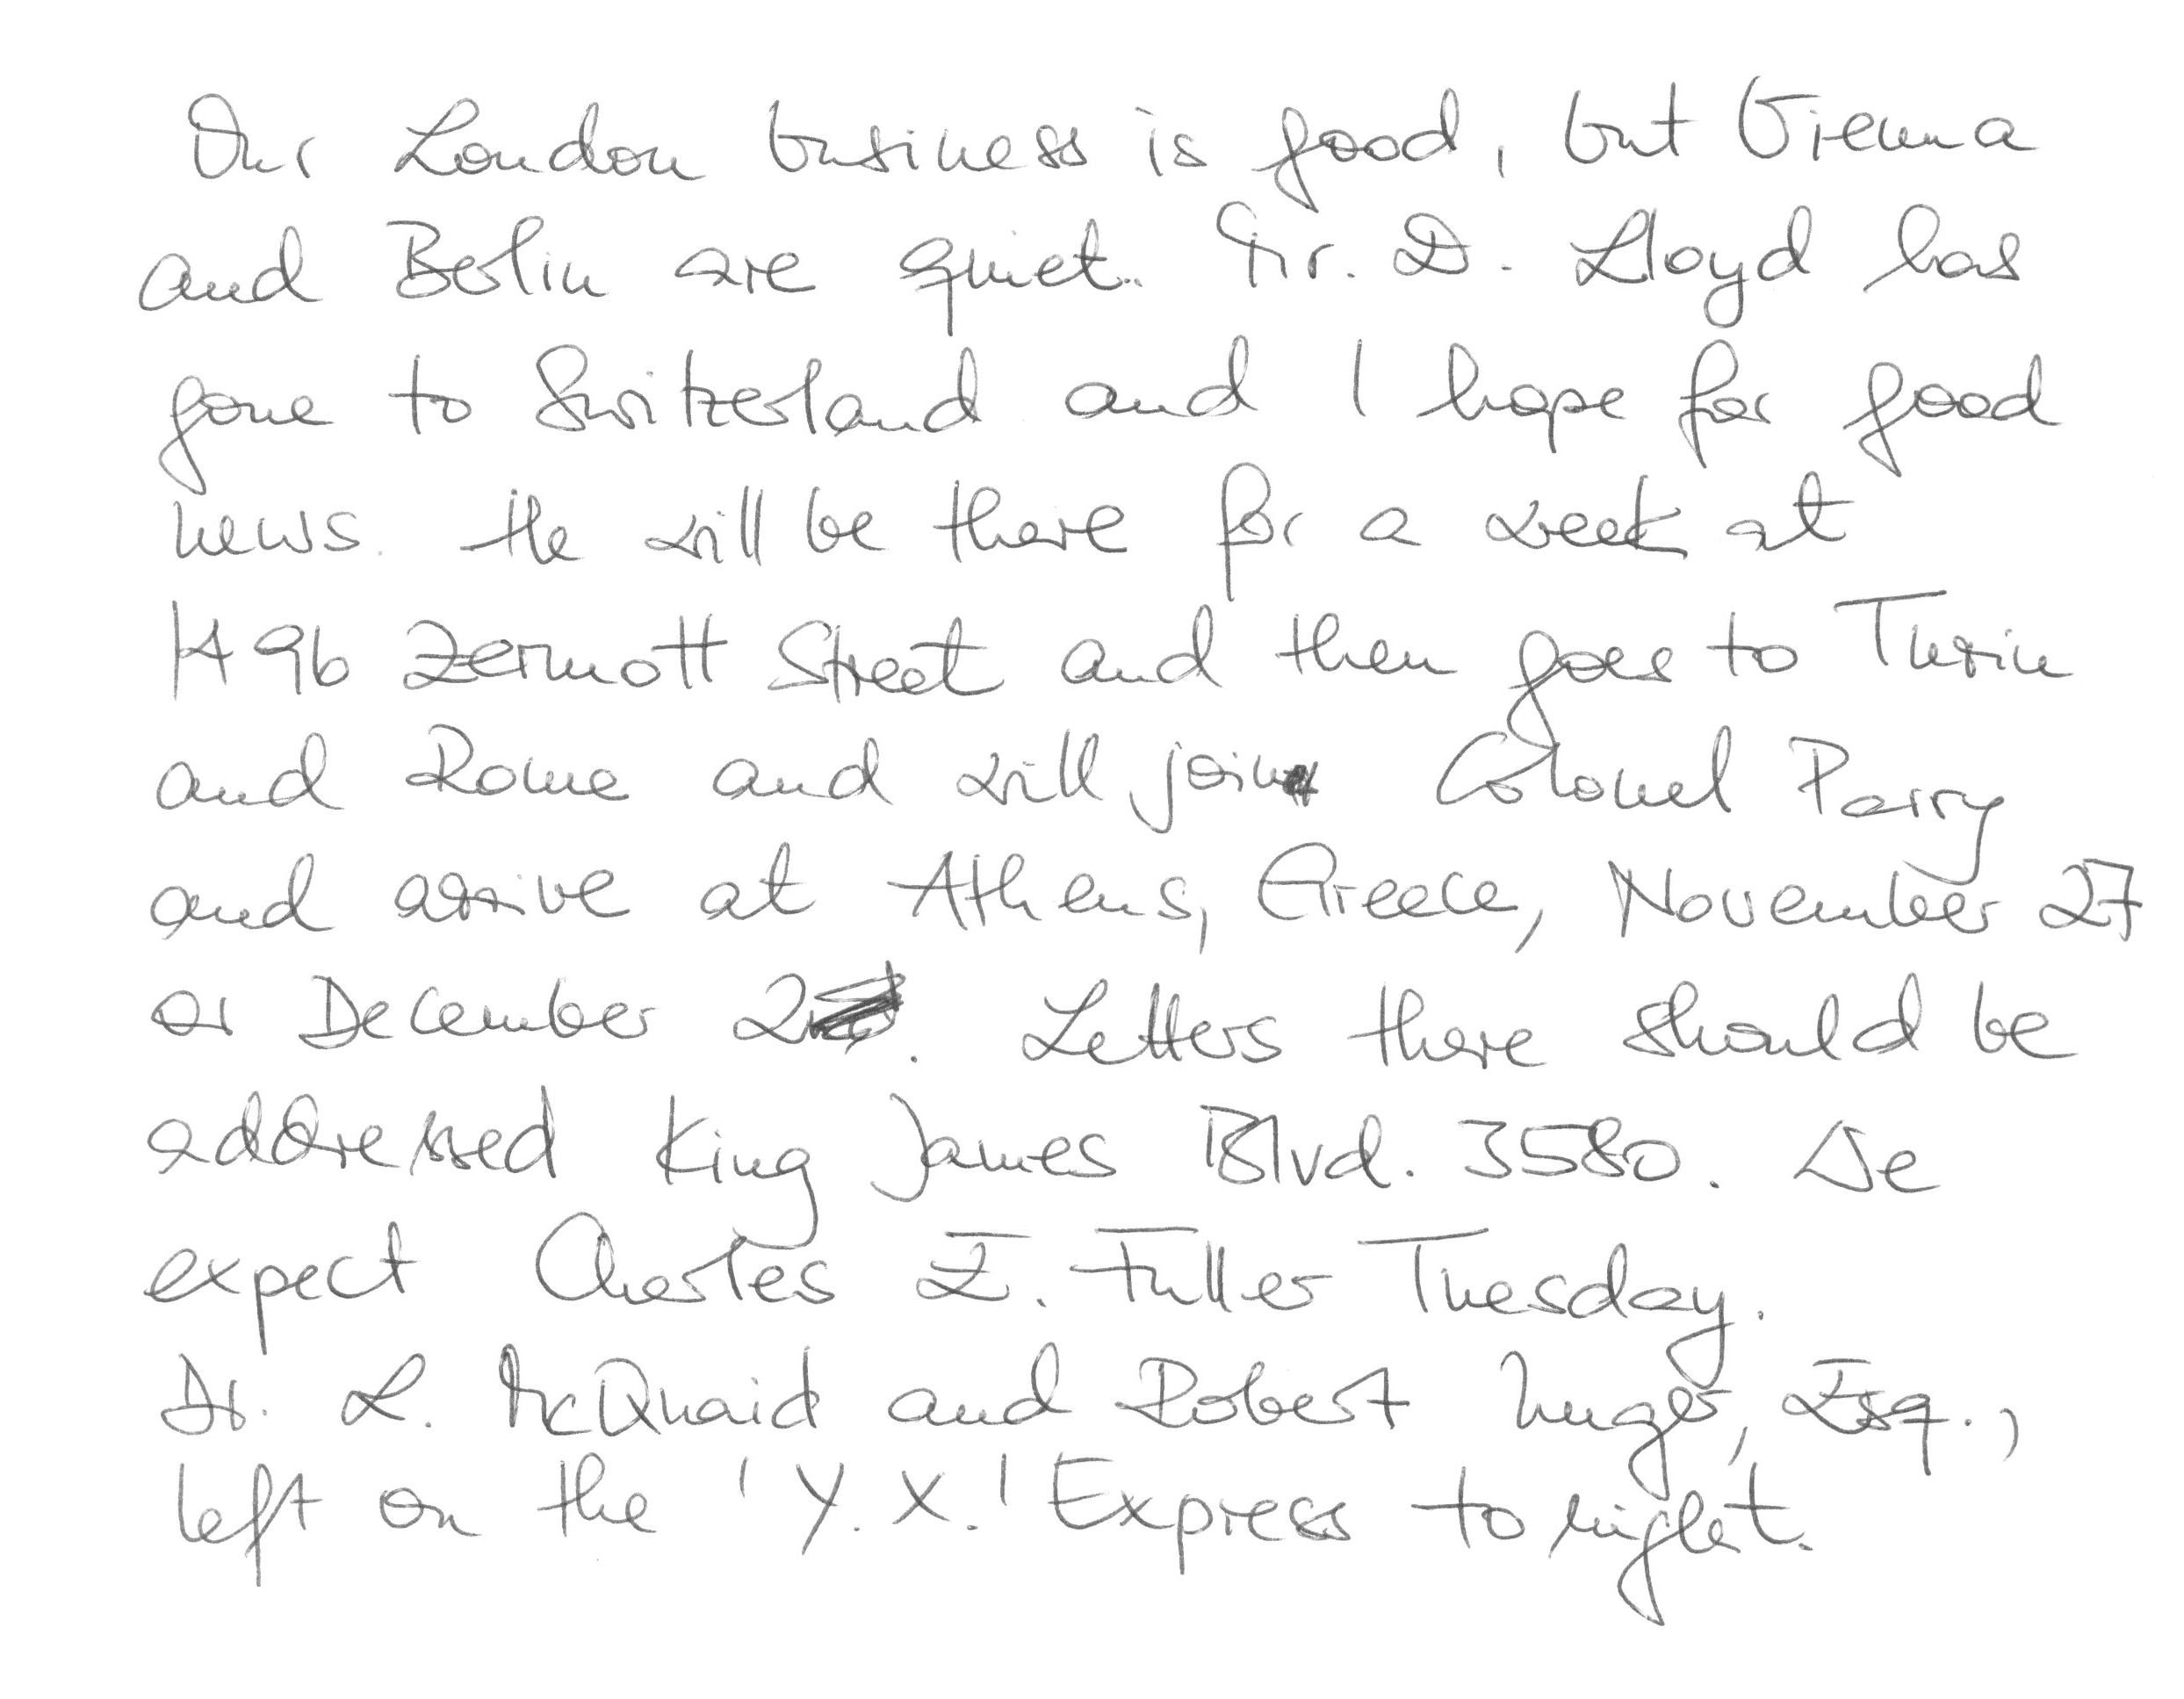 Our London business is good, but Vienna
and Berlin are quiet. Mr. D. Lloyd has
gone to Switzerland and I hope for good
news. He will be there for a week at
1496 Zermott Street and then goes to Turin
and Rome and will join Colonel Parry
and arrive at Athens, Greece, November 27
or December 2. Letters there should be
addressed King James Blvd. 3580. We
expect Charles E. Fuller Tuesday.
Dr. L. McQuaid and Robert Unger, Esq.,
left on the 'Y.X.' Express tonight.